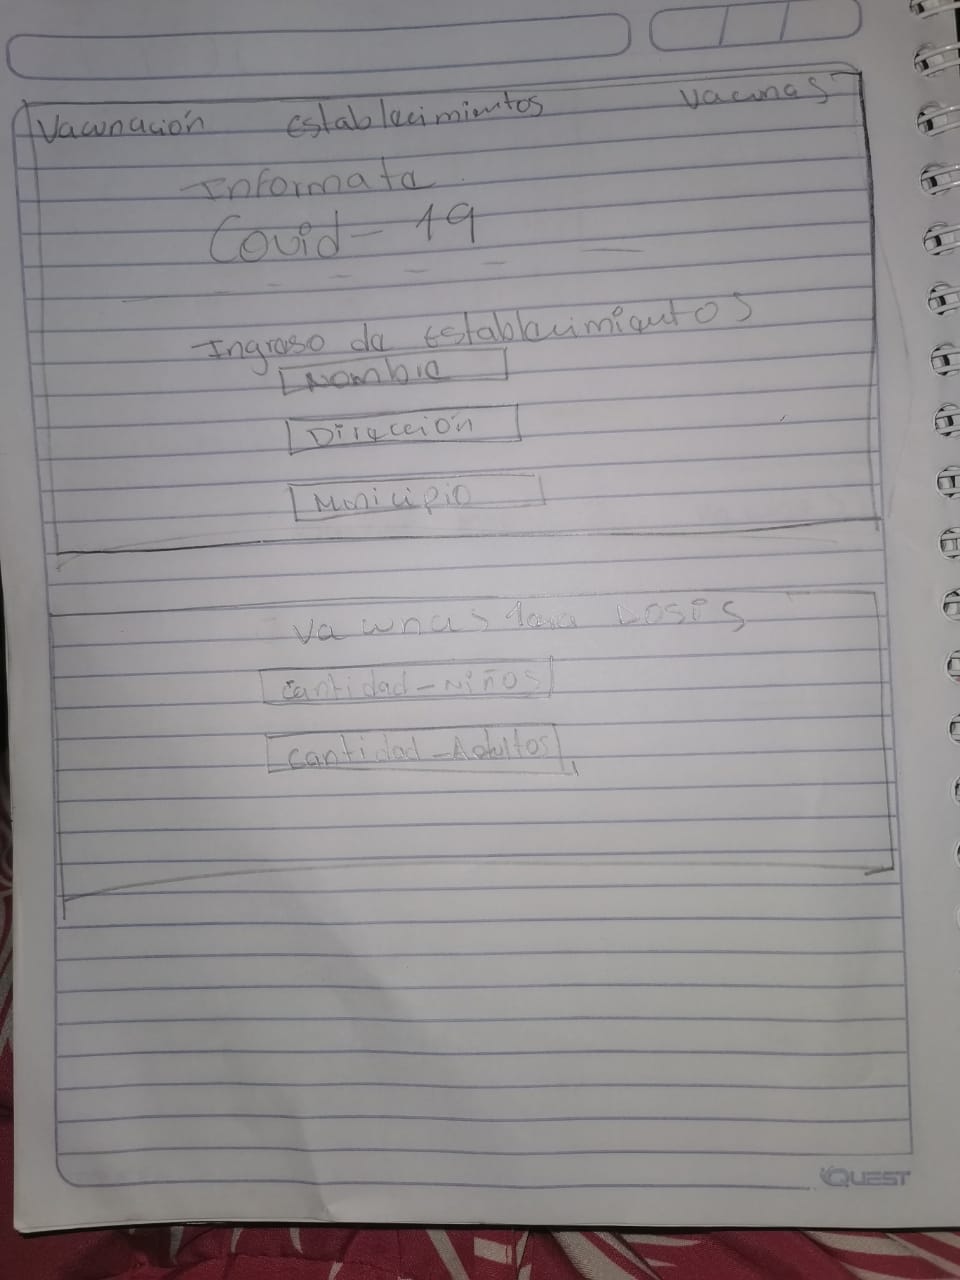 Vacunación establecimientos Vacunas
Informate
Covid-19
Ingreso de Establecimientos
Nombre
Dirección
Municipio
Vacunas 1era Dosis
Cantidad-Niños
Cantidad-Adultos
QUEST